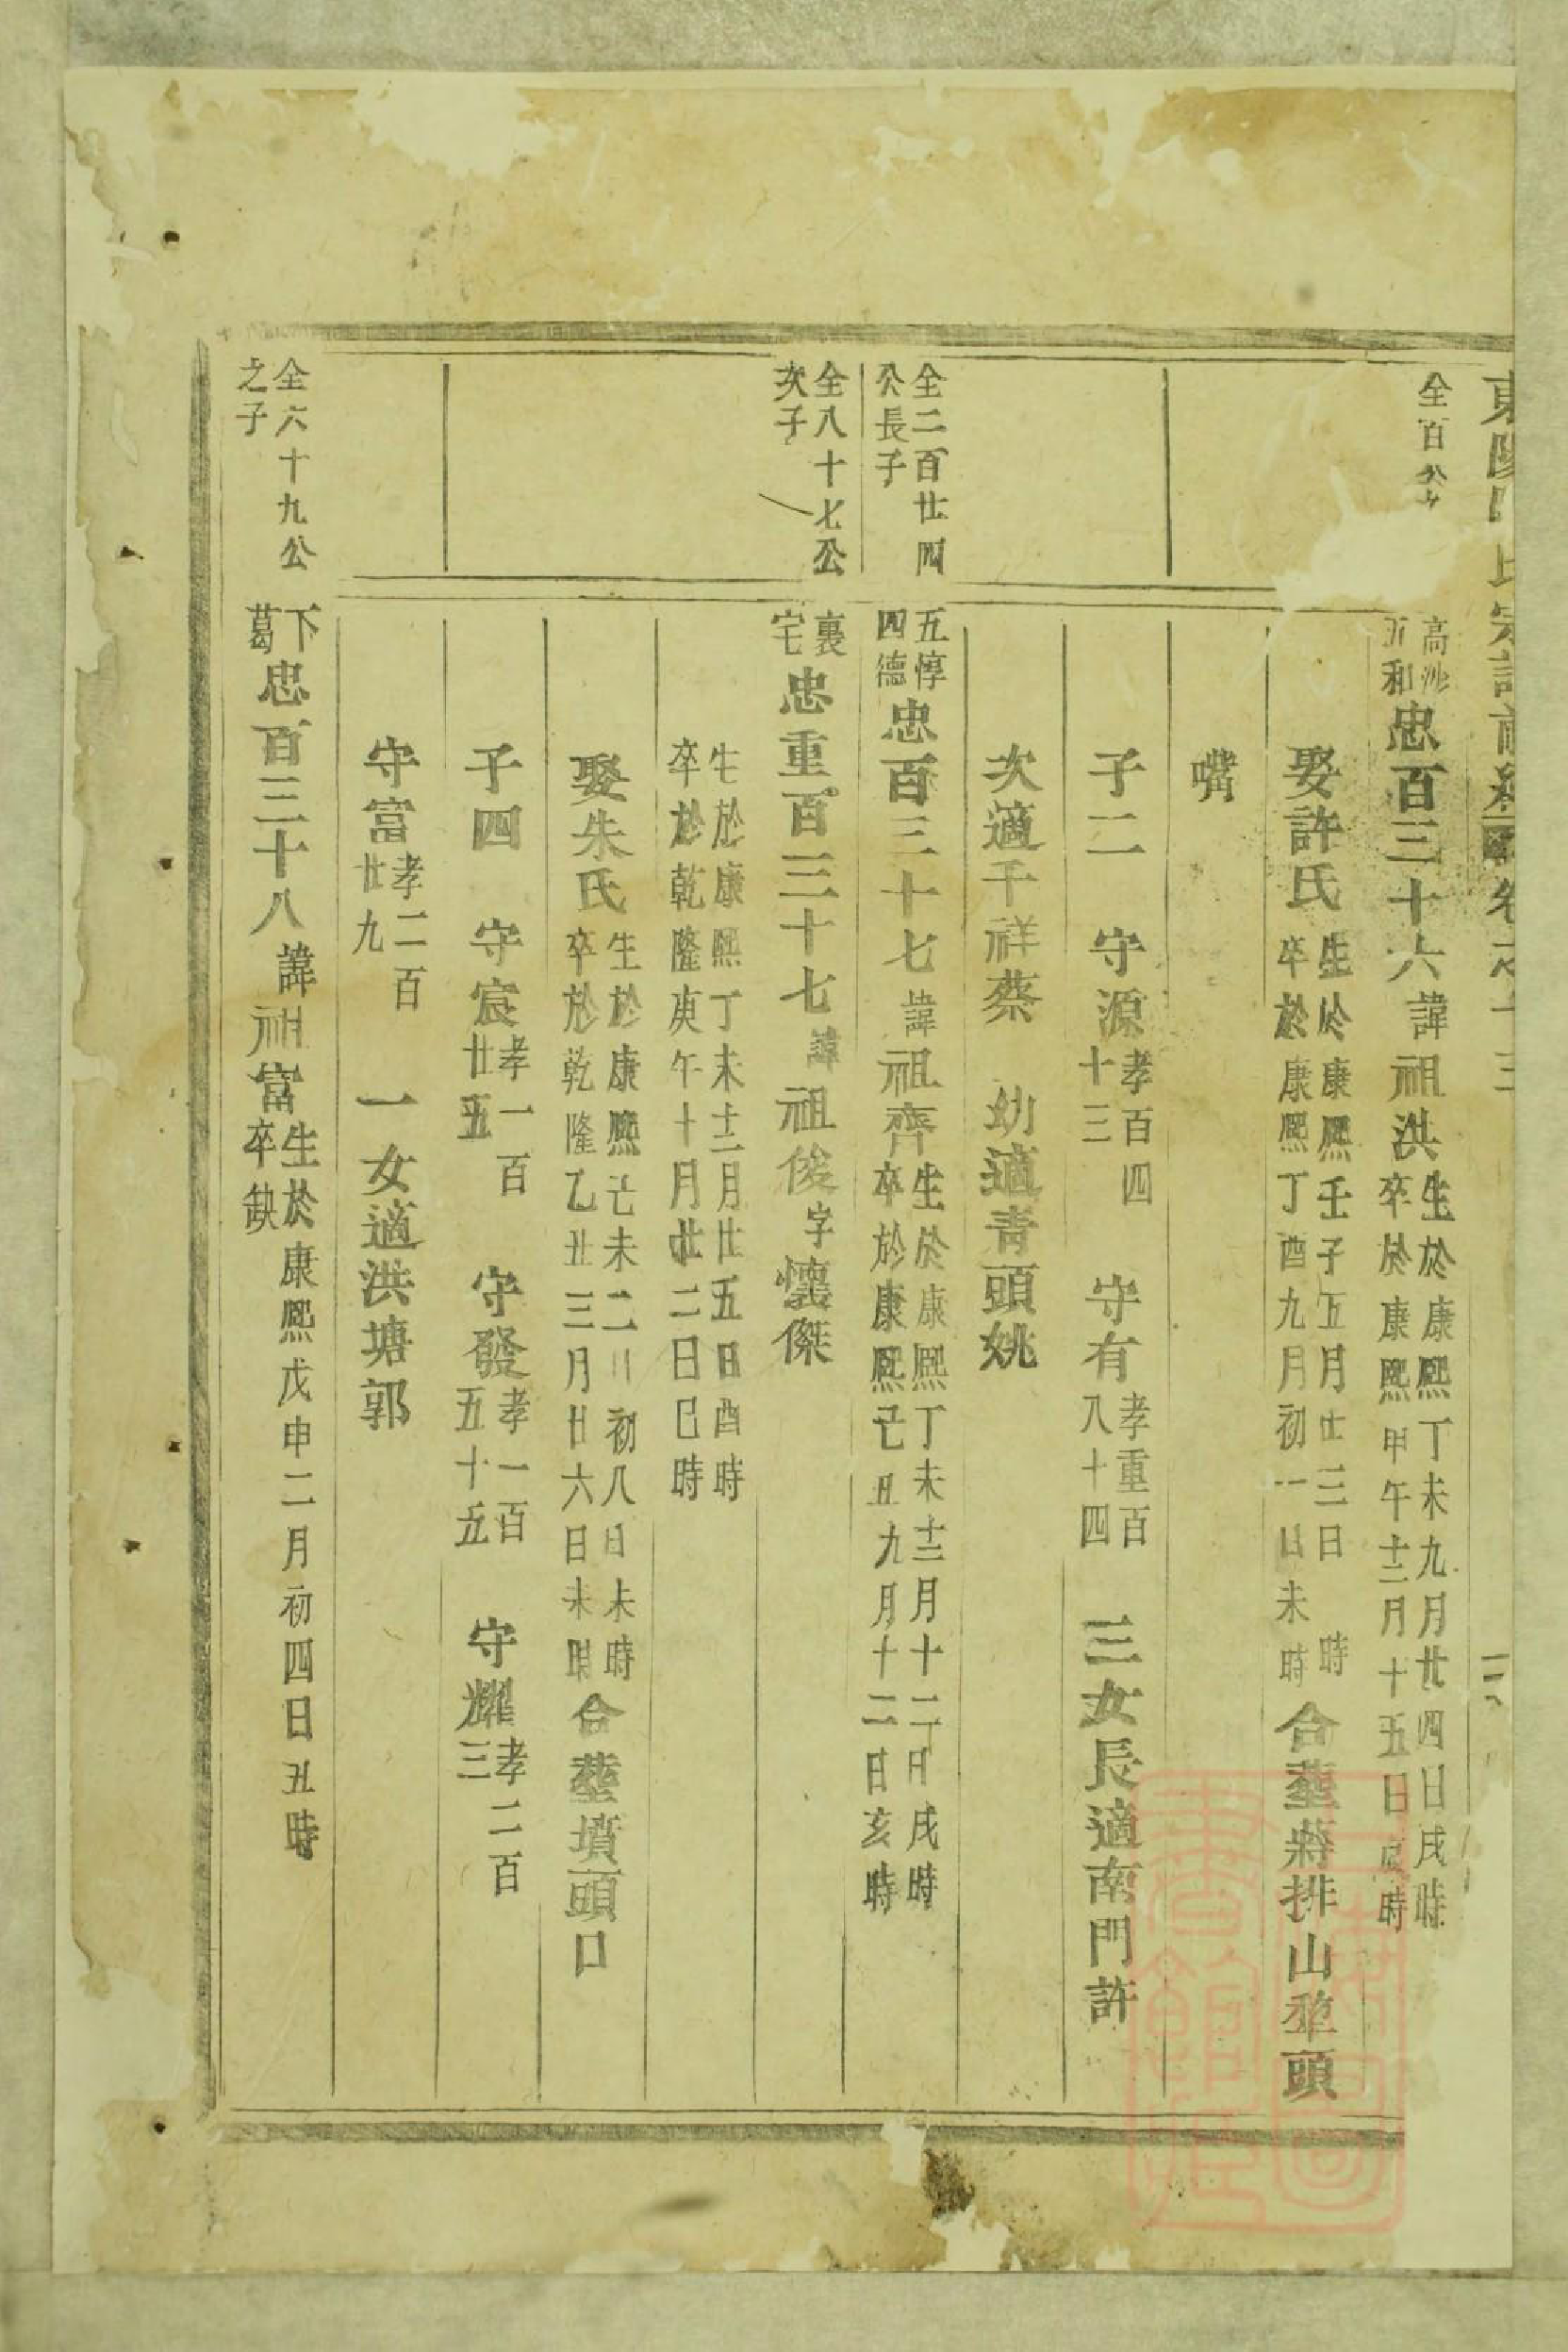 東陽 氏宗譜 卷之十三
全百
高沙 和 忠百三十六 諱祖洪 生於康熙丁未九月廿四日戌時 卒於康熙甲午十二月十五日 時
娶許氏 生於康熙壬子五月廿三日 時 卒於康熙丁酉九月初一日未時 合塟蔣排山犂頭
嘴
子二 守源 孝百四十三 守有 孝重百八十四 三女長適南門許
次適干祥蔡 幼適青頭姚
全二百廿四公長子
五惇四德 忠百三十七 諱祖齊 生於康熙丁未十二月十二日戌時 卒於康熙己丑九月十二日亥時
全八十七公次子
裏宅 忠重百三十七 諱祖俊 字懷傑
生於康熙丁未十二月廿五日酉時 卒於乾隆庚午十月廿二日巳時
娶朱氏 生於康熙己未二月初八日未時 卒於乾隆乙丑三月廿六日未時 合塟墳頭口
子四 守宸 孝一百廿五 守發 孝一百五十五 守耀 孝二百三
守富 孝二百廿九 一女適洪塘郭
全六十九公之子
下葛 忠百三十八 諱祖富 生於康熙戊申二月初四日丑時 卒缺